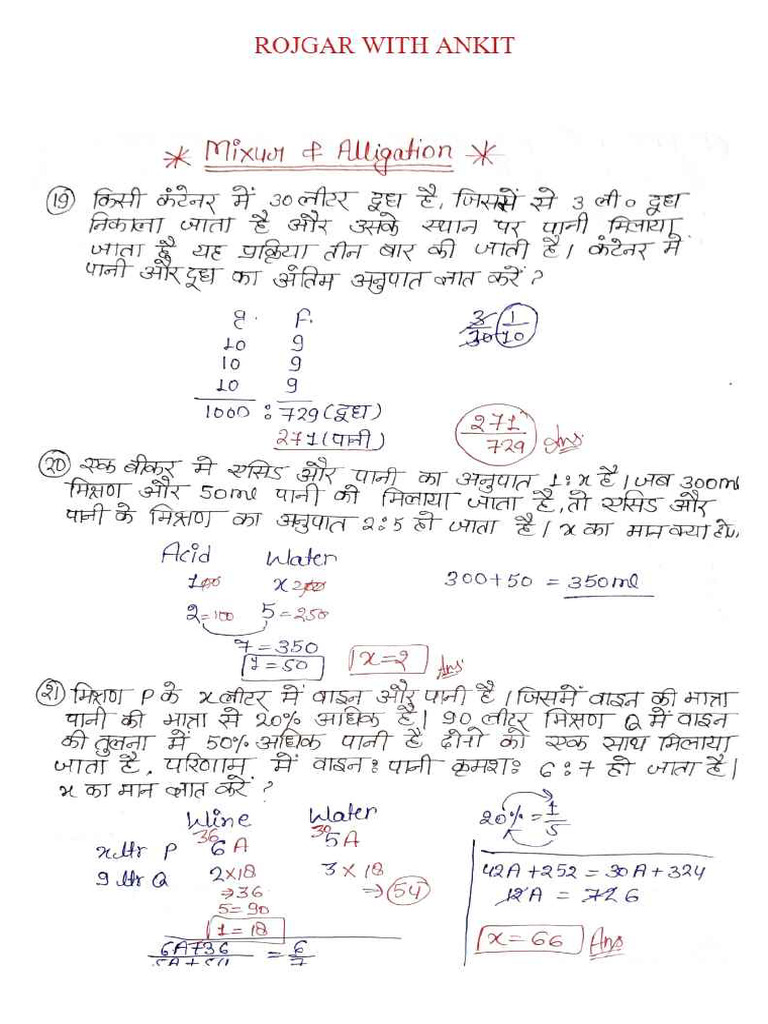 ROJGAR WITH ANKIT
* Mixuर & Alligation *
19 किसी कंटेनर में 30 लीटर दूध है, जिसमें से 3 ली० दूध
निकाला जाता है और उसके स्थान पर पानी मिलाया
जाता है यह प्रक्रिया तीन बार की जाती है। कंटेनर में
पानी और दूध का अंतिम अनुपात ज्ञात करें ?
I. F.
10 9
10 9
10 9
1000 : 729 (दूध)
271 (पानी)
3/30 1/10
271/729 Ans
20 एक बीकर मे एसिड और पानी का अनुपात 1:x है। जब 300ml
मिश्रण और 50ml पानी को मिलाया जाता है, तो एसिड और
पानी के मिश्रण का अनुपात 2:5 हो जाता है। x का मान क्या होगा.
Acid Water
100 x200
2=100 5=250
7=350
1=50
x=2 Ans
300+50 = 350ml
21 मिश्रण P के x लीटर में वाइन और पानी है। जिसमें वाइन की मात्रा
पानी की मात्रा से 20% अधिक है। 90 लीटर मिश्रण Q में वाइन
की तुलना में 50% अधिक पानी है दोनो को एक साथ मिलाया
जाता है, परिणाम में वाइन : पानी क्रमश: 6:7 हो जाता है।
x का मान ज्ञात करें ?
Wine Water
36 30
x ltr P 6A 5A
9 ltr Q 2×18 3×18
⇒36 ⇒54
5=90
1=18
6A+36 = 6/7
20% = 1/5
42A+252 = 30A+324
12A = 726
x=66 Ans